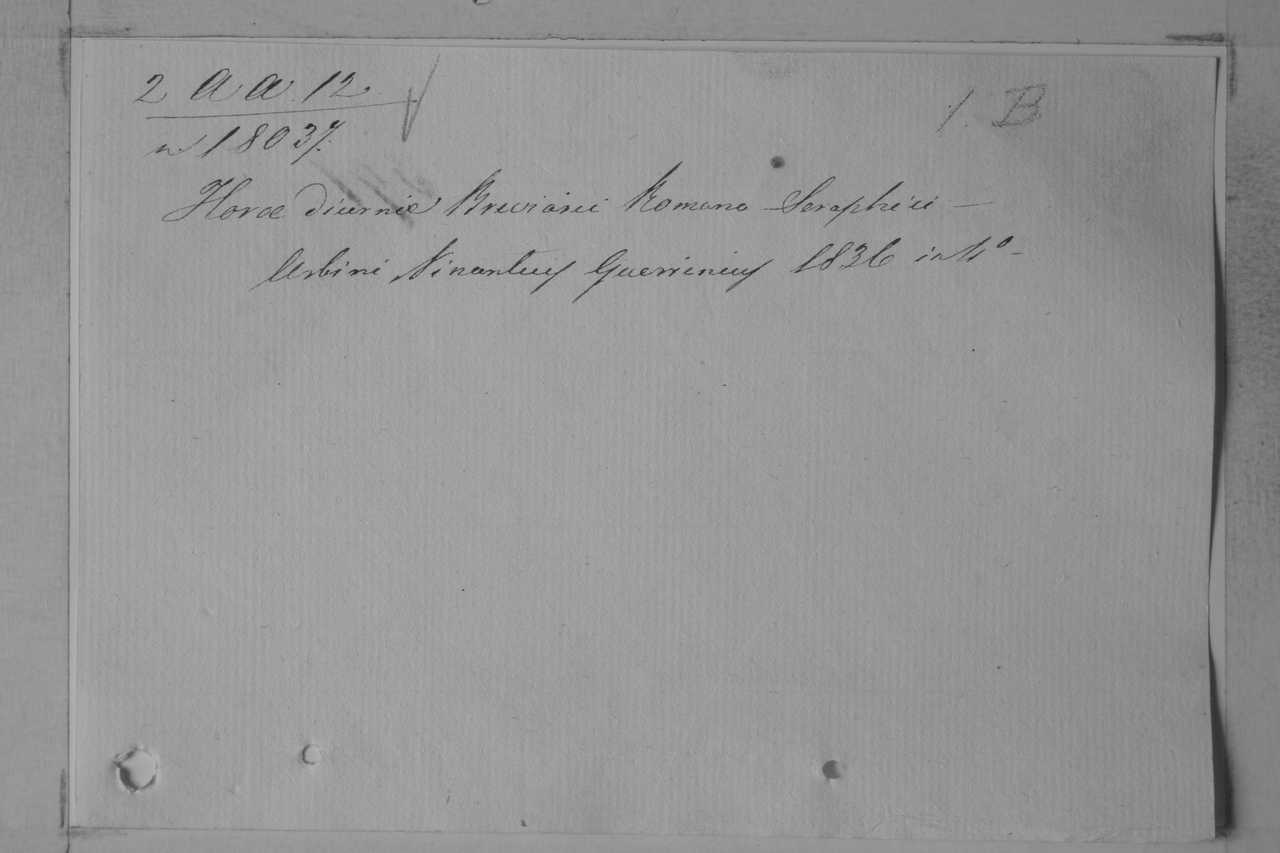 2 a a 12
n 18037.
1. B
Horæ diurnæ Breviarii Romano-Seraphici —
Urbini Vincentius Guerrinius 1836 in 4º -